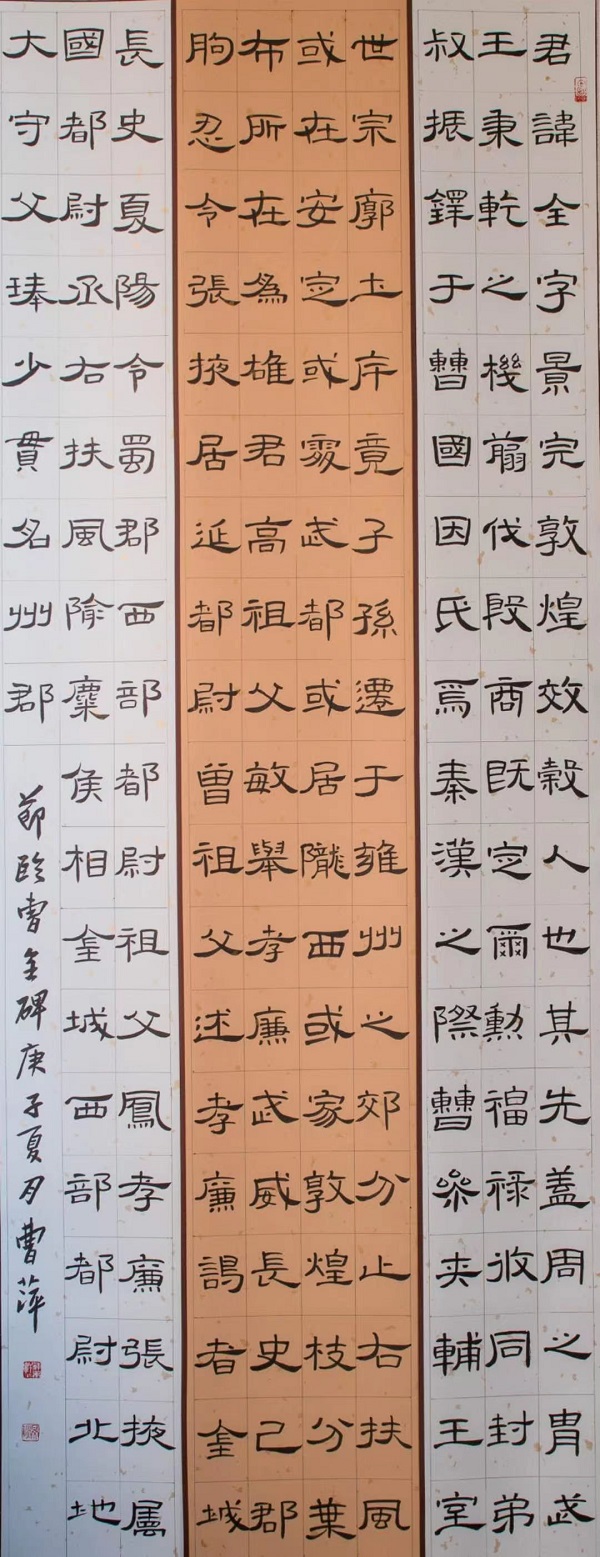 君諱全字景完敦煌效穀人也其先蓋周之胄武
王秉乾之機翦伐殷商既定爾勲福祿攸同封弟
叔振鐸于曹國因氏焉秦漢之際曹参夹輔王室
世宗廓土斥竟子孫遷于雍州之郊分止右扶風
或在安定或處武都或居隴西或家敦煌枝分葉
布所在為雄君高祖父敏舉孝廉武威長史巴郡
朐忍令張掖居延都尉曾祖父述孝廉謁者金城
長史夏陽令蜀郡西部都尉祖父鳳孝廉張掖屬
國都尉丞右扶風隃麋侯相金城西部都尉北地
大守父琫少貫名州郡
節臨曹全碑庚子夏月曹萍